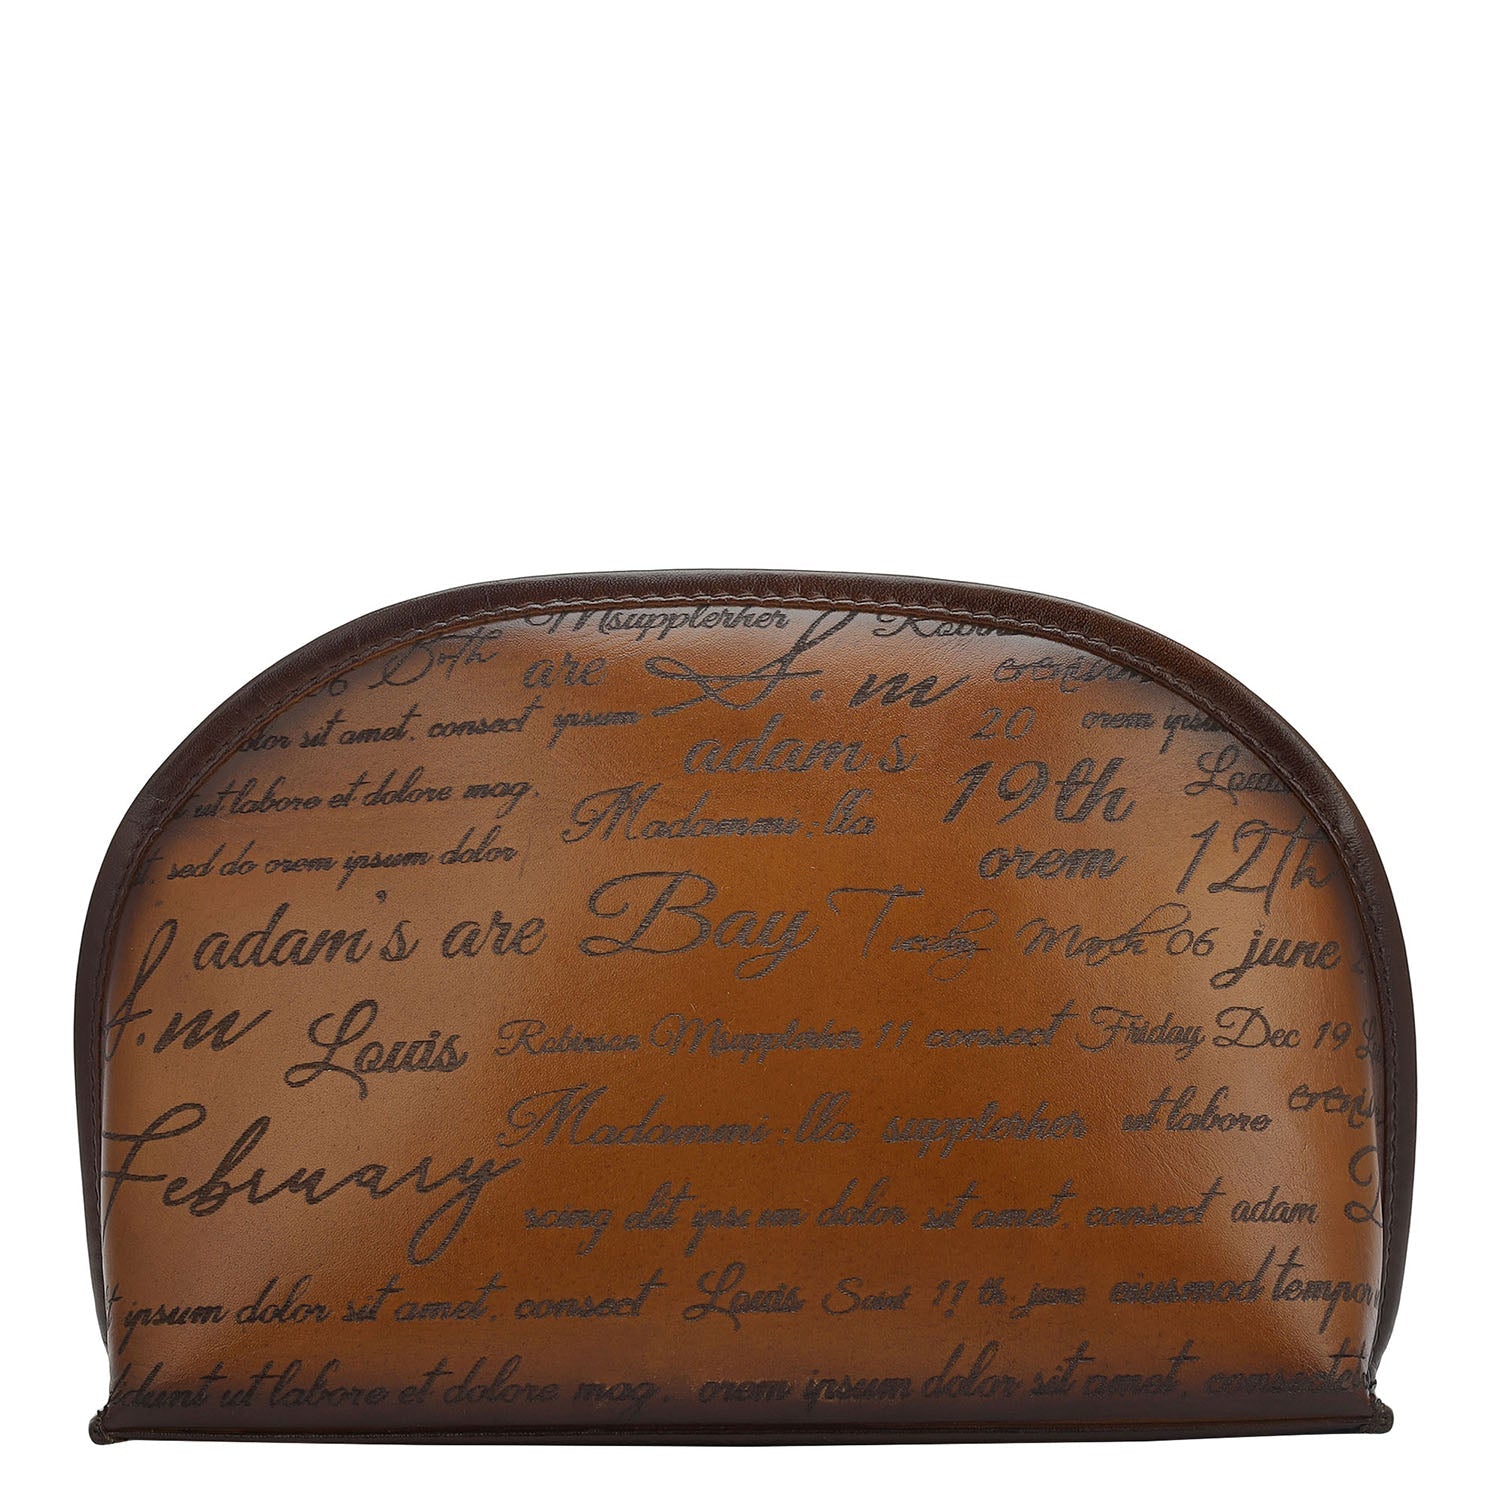 Msupplerher
6 are S.m
olor sit amet, consect ipsum 20 orem ipsu
adam's Loui
ut labore et dolore mag. 19th
Madammi;lla
t, sed do orem ipsum dolor orem 12th
adam's are Bay Tuesday March 06 june 2
S.m Louis Robinson Msupplerher 11 consect Friday Dec 19
Madammi;lla supplerher ut labore
February scing elit ipsum dolor sit amet, consect adam
t ipsum dolor sit amet, consect Louis Saint 11 th june eiusmod tempor
dunt ut labore et dolore mag. orem ipsum dolor sit amet, consectet